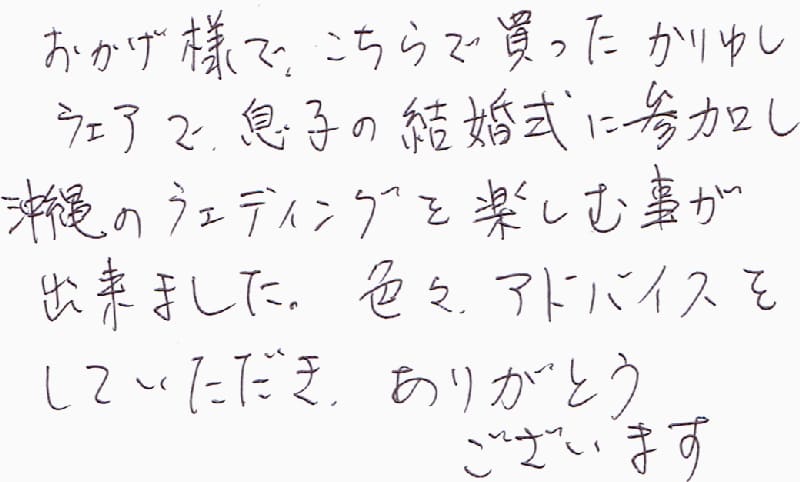 おかげ様で、こちらで買ったかりゆし
ウェアで、息子の結婚式に参加し
沖縄のウェディングを楽しむ事が
出来ました。色々、アドバイスを
していただき、ありがとう
ございます